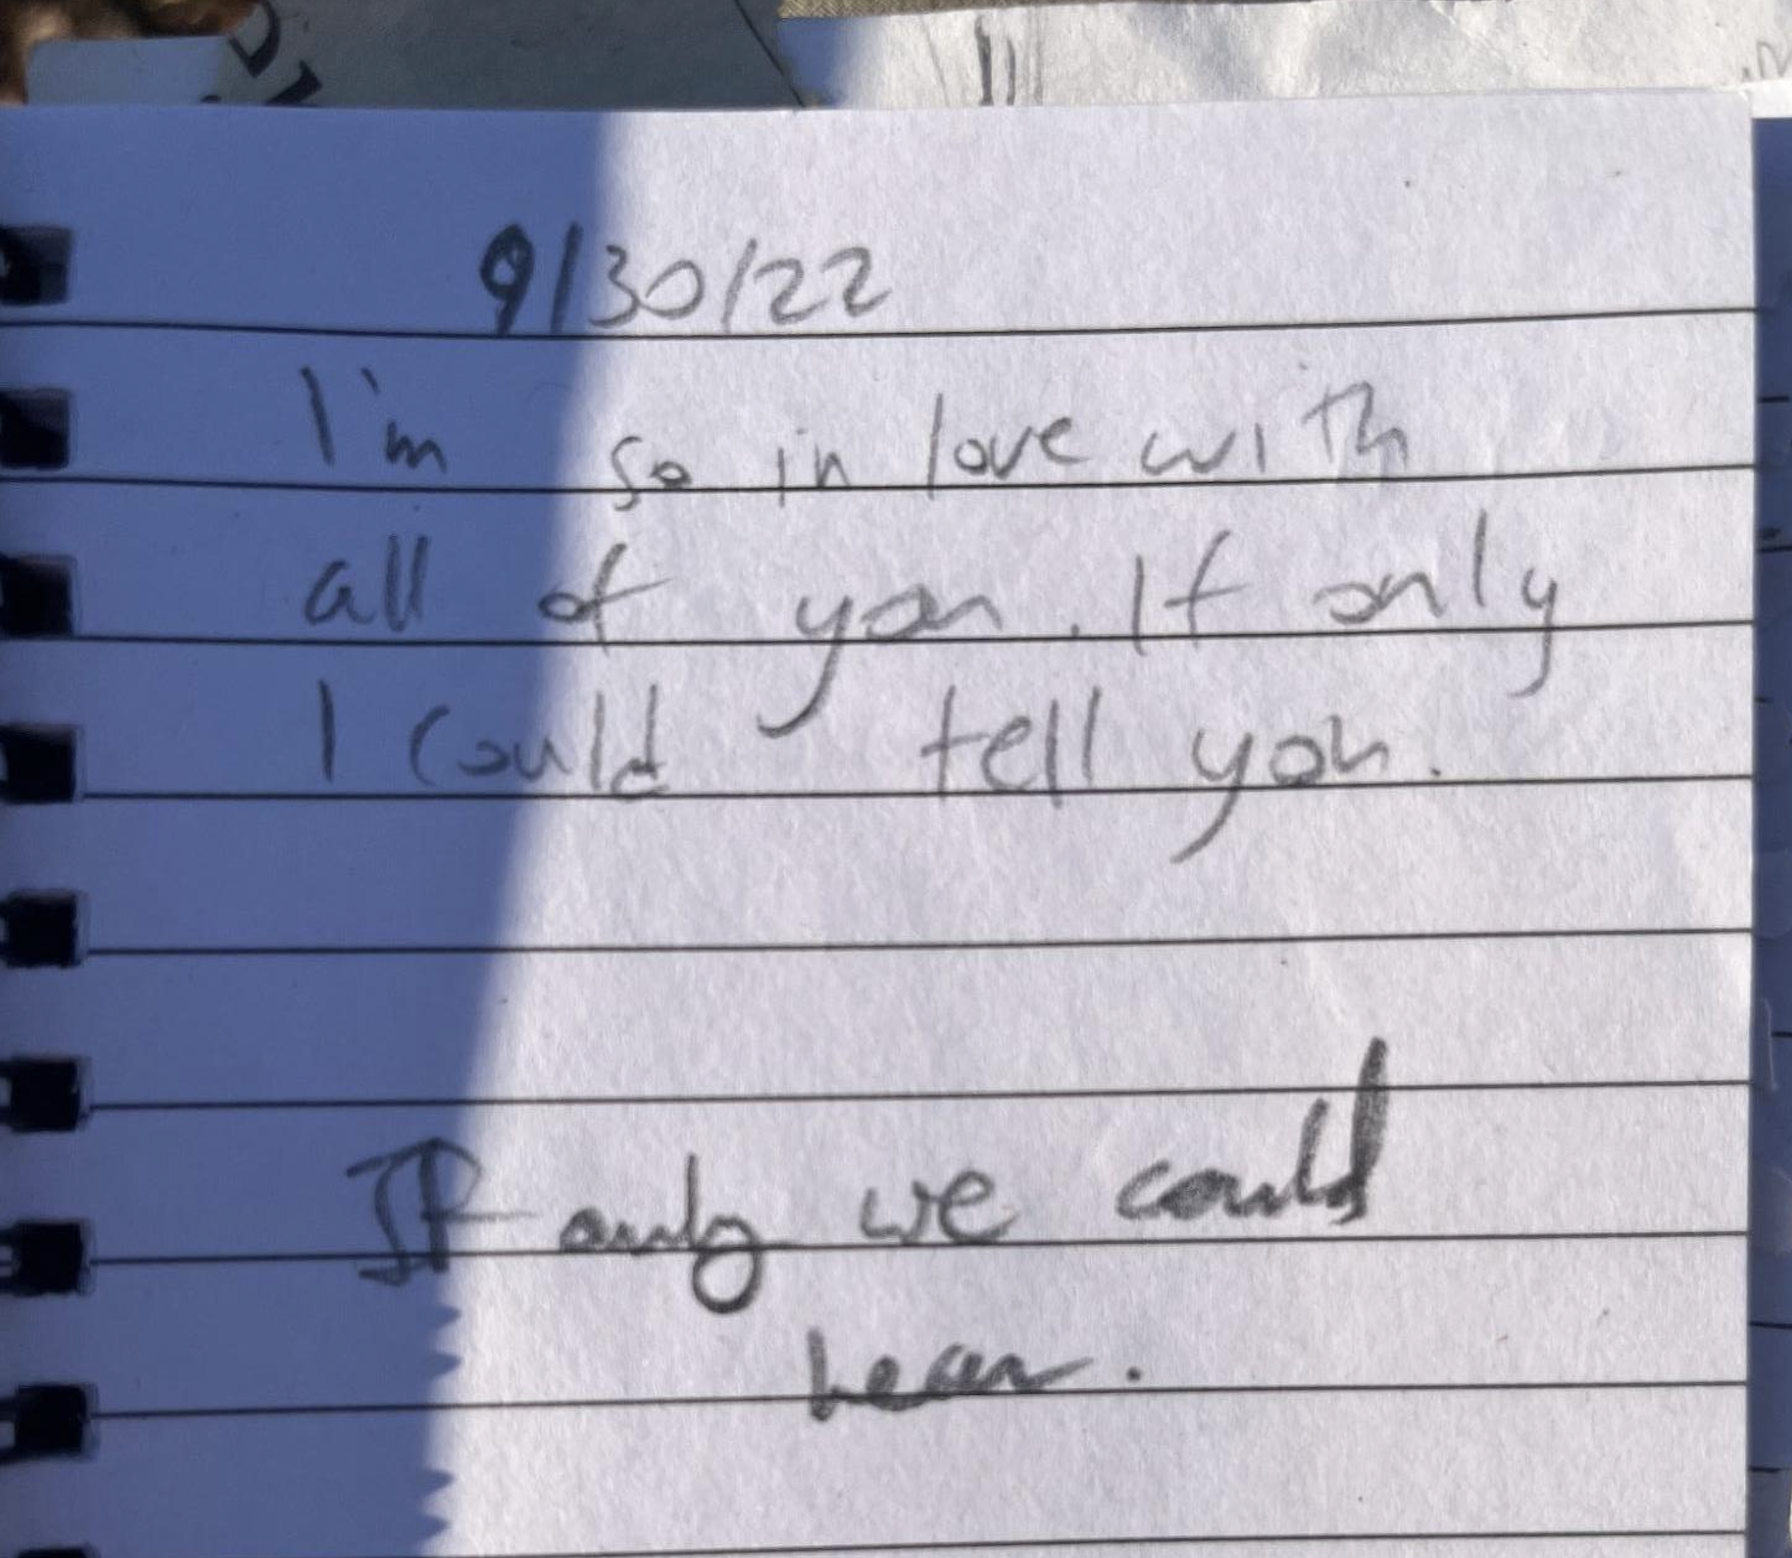 9/30/22
I'm so in love with
all of you. If only
I could tell you.
If only we could
hear.